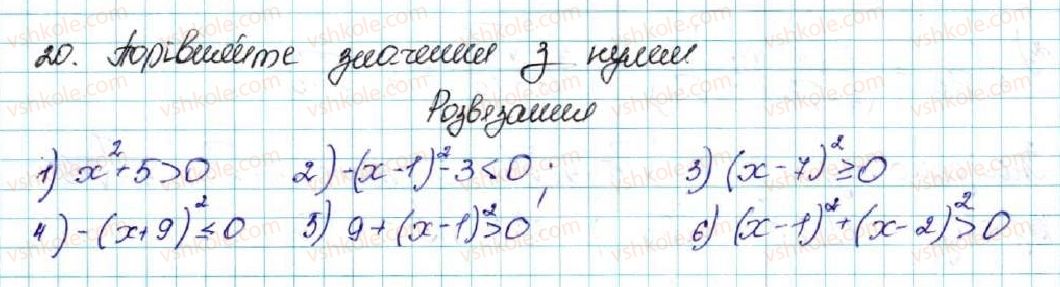 20. Порівняйте значення з нулем
Розвязання
1) x² + 5 > 0   2) -(x-1)² - 3 < 0;   3) (x-7)² ≥ 0
4) -(x+9)² ≤ 0   5) 9 + (x-1)² > 0   6) (x-1)² + (x-2)² > 0